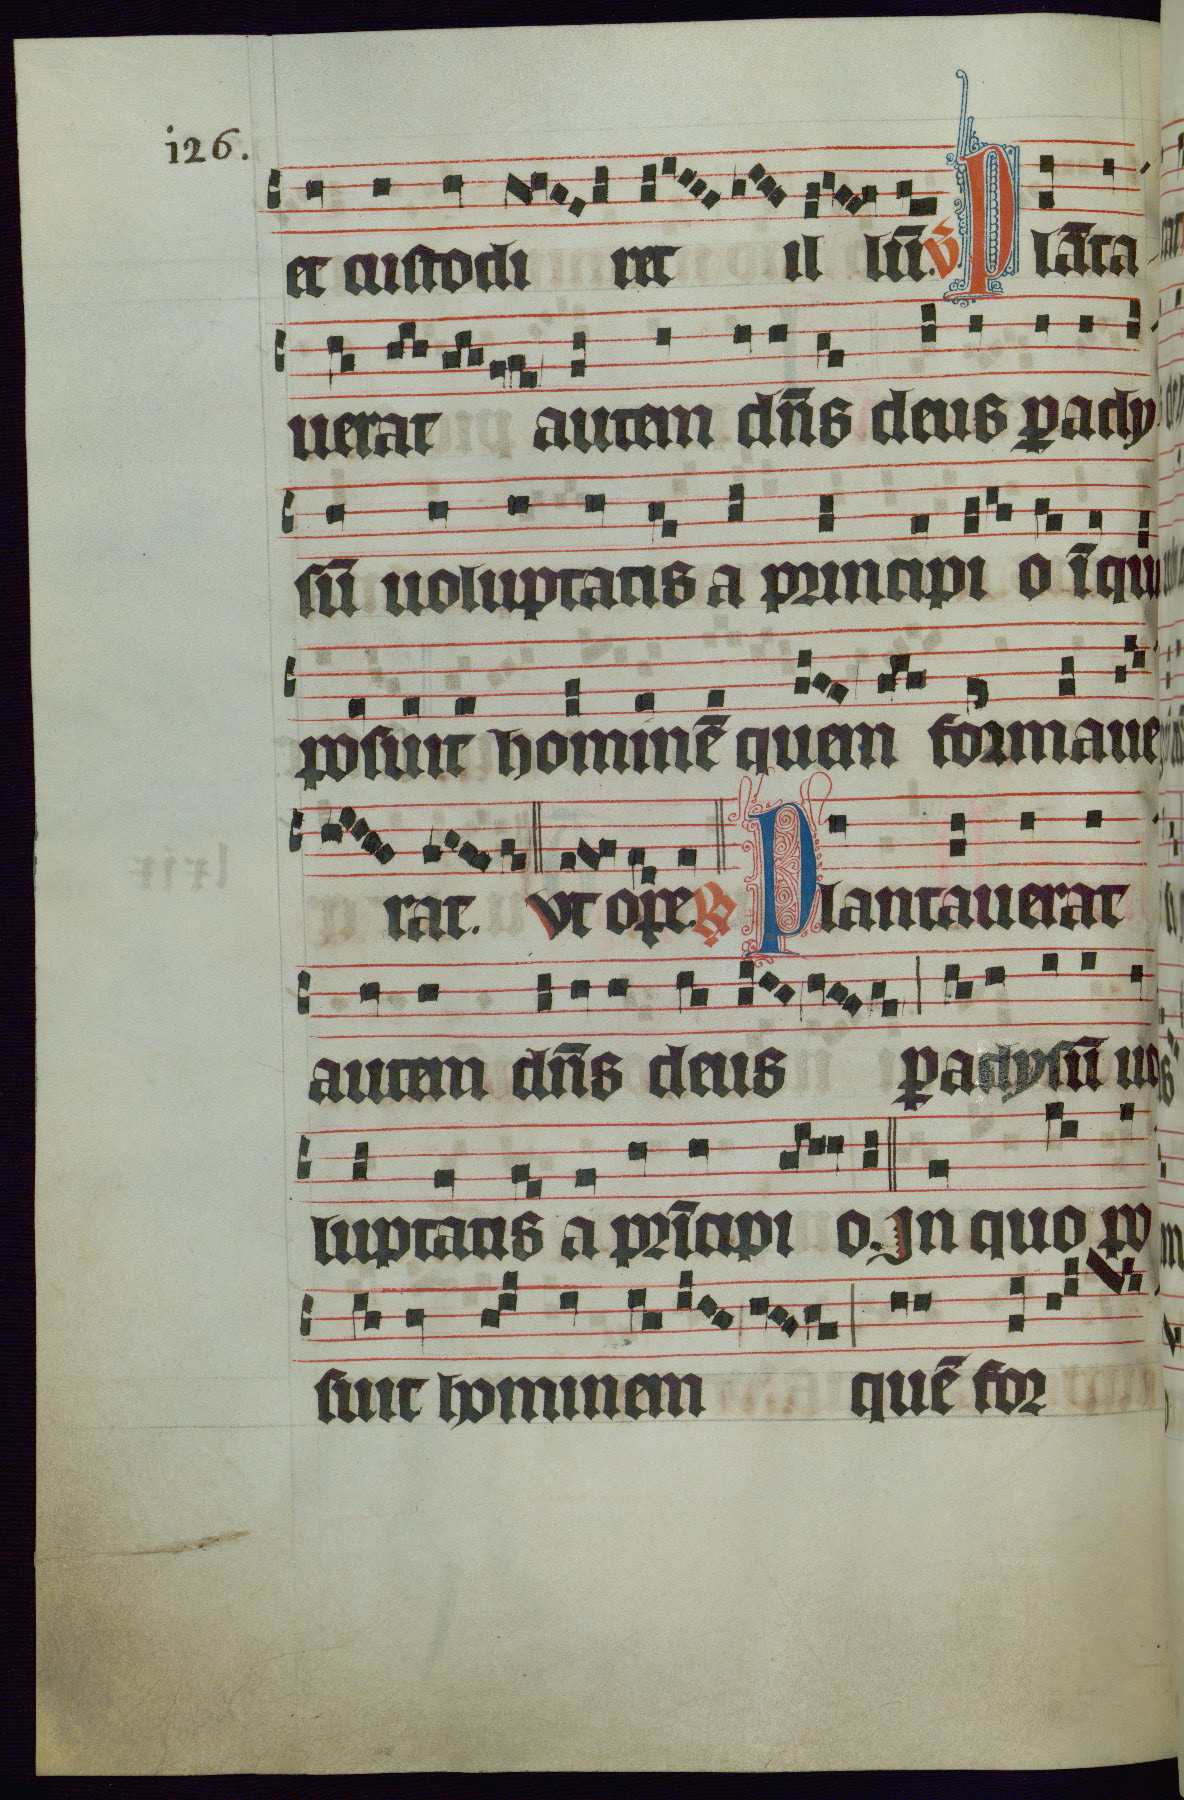 i26.
et custodi ret il lū. V̄ Plāta
uerat autem dn̄s deus ꝑady
sū uoluptatis a principi o ī qu
posuit hominē quem formaue
rat. Vt ope. R̄ Plantauerat
autem dn̄s deus ꝑadysū uo
luptatis a prīcipi o. In quo po
suit hominem quē for